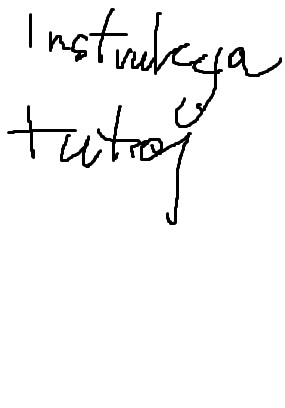 Instrukcya
tutoj